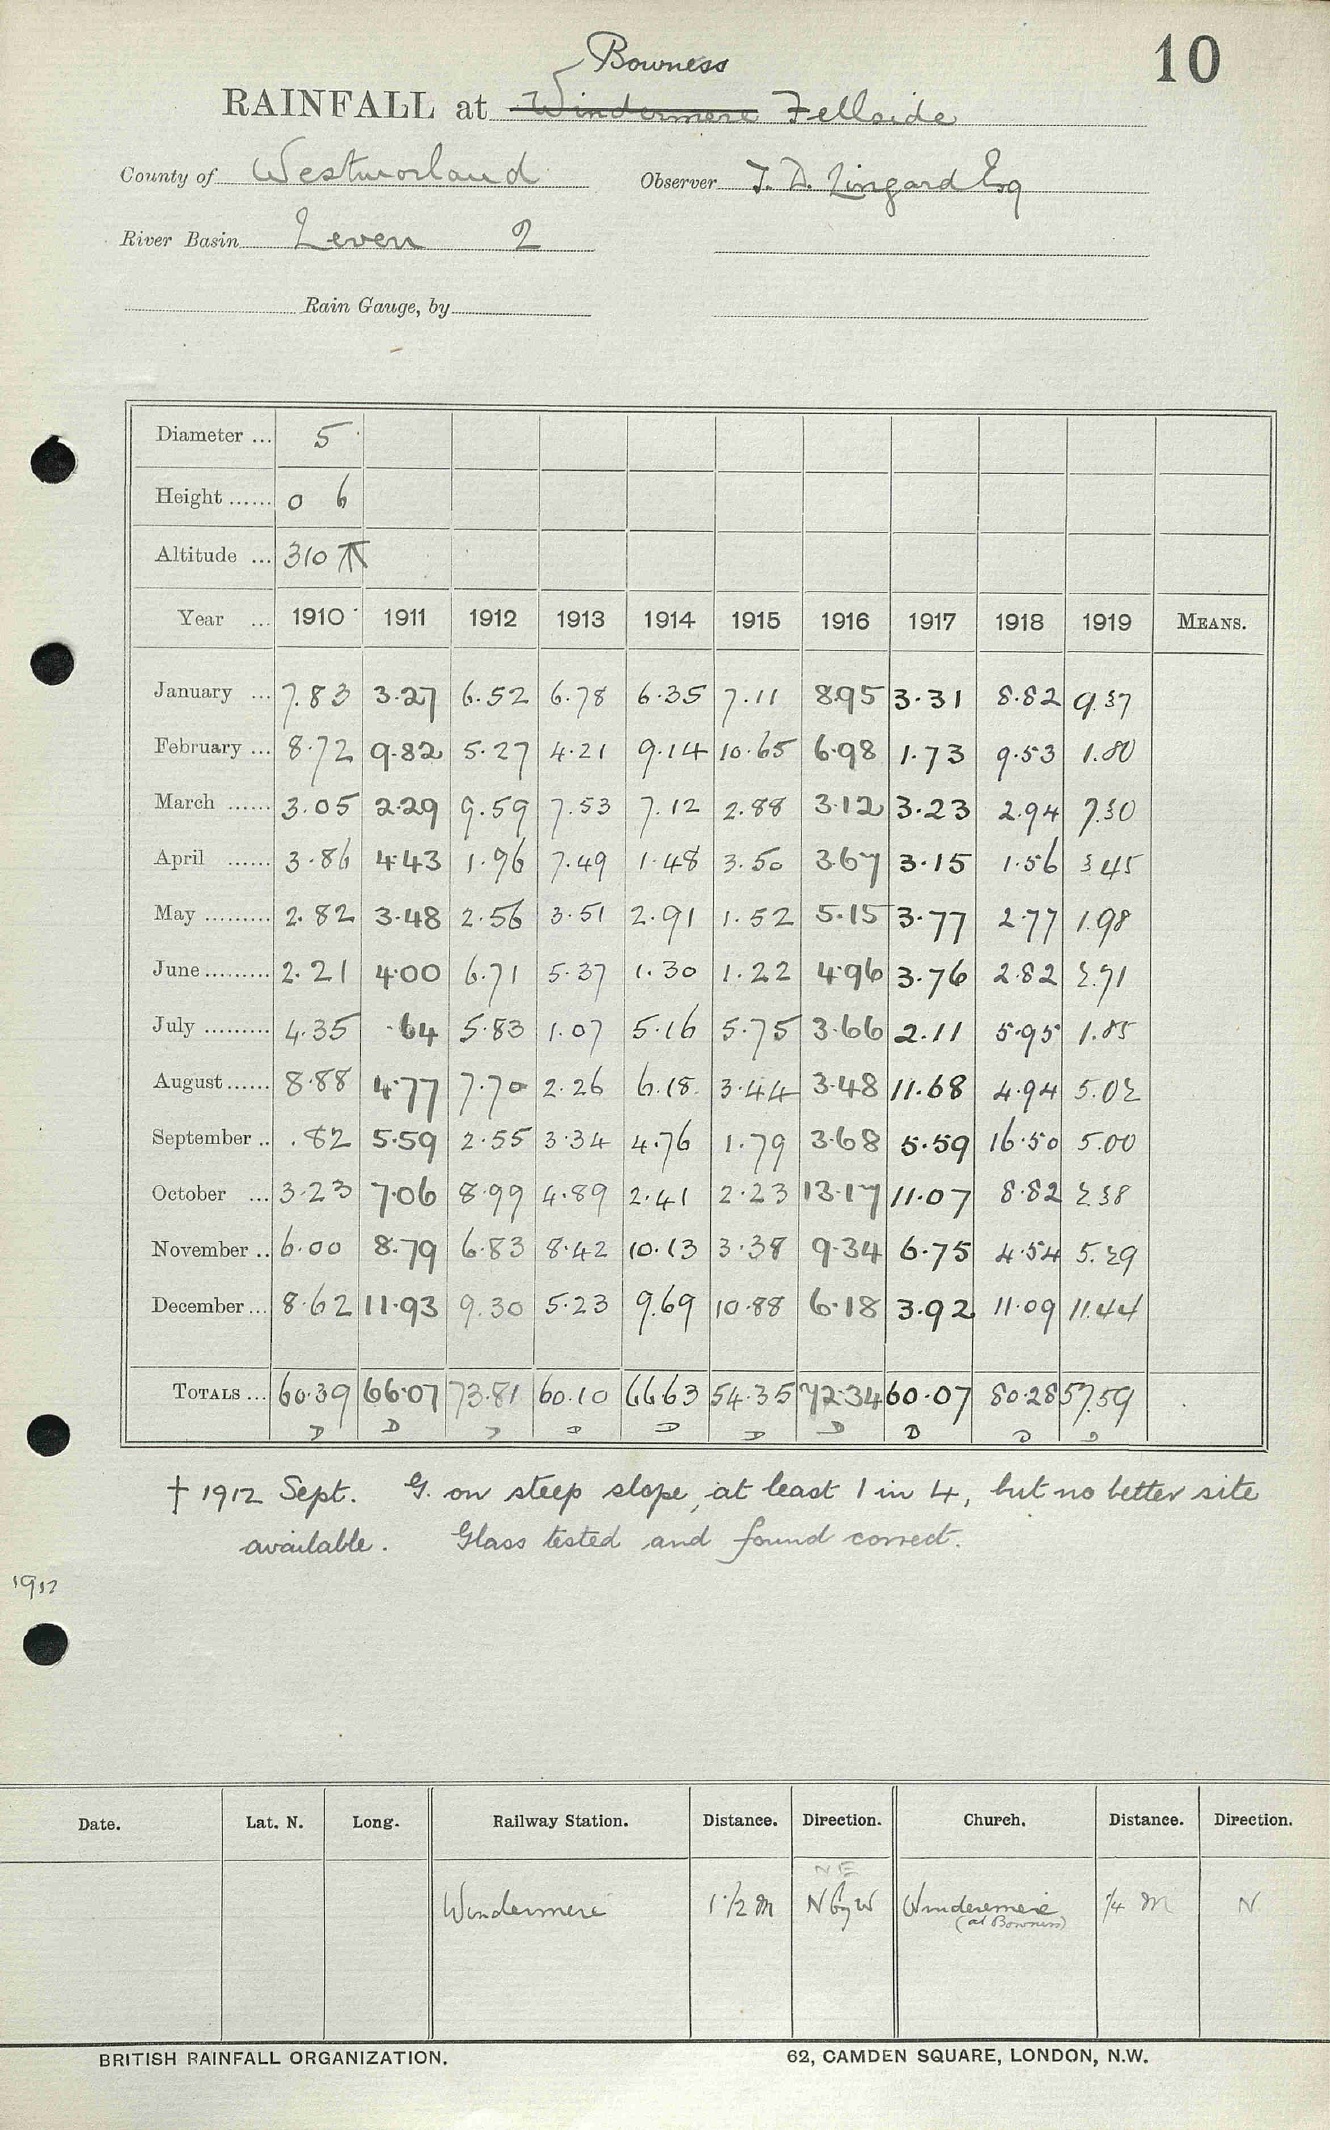 10
Bowness
RAINFALL at Windermere Fellside
County of Westmorland Observer T. D. Lingard Esq
River Basin Leven 2
Rain Gauge, by
Diameter ... 5
Height ...... 0 6
Altitude ... 310
Year ... 1910 1911 1912 1913 1914 1915 1916 1917 1918 1919 MEANS.
January ... 7.83 3.27 6.52 6.78 6.35 7.11 8.95 3.31 8.82 9.37
February ... 8.72 9.82 5.27 4.21 9.14 10.65 6.98 1.73 9.53 1.80
March ...... 3.05 2.29 9.59 7.53 7.12 2.88 3.12 3.23 2.94 7.30
April ...... 3.86 4.43 1.96 7.49 1.48 3.50 3.67 3.15 1.56 3.45
May ......... 2.82 3.48 2.56 3.51 2.91 1.52 5.15 3.77 2.77 1.98
June ......... 2.21 4.00 6.71 5.37 1.30 1.22 4.96 3.76 2.82 2.71
July ......... 4.35 .64 5.83 1.07 5.16 5.75 3.66 2.11 5.95 1.85
August ...... 8.88 4.77 7.70 2.26 6.18 3.44 3.48 11.68 4.94 5.02
September .. .82 5.59 2.55 3.34 4.76 1.79 3.68 5.59 16.50 5.00
October ... 3.23 7.06 8.99 4.89 2.41 2.23 13.17 11.07 8.82 2.38
November .. 6.00 8.79 6.83 8.42 10.13 3.38 9.34 6.75 4.54 5.29
December ... 8.62 11.93 9.30 5.23 9.69 10.88 6.18 3.92 11.09 11.44
TOTALS ... 60.39 66.07 73.81 60.10 66.63 54.35 72.34 60.07 80.28 57.59
D D D D D D D D D D
† 1912 Sept. G. on steep slope, at least 1 in 4, but no better site
available. Glass tested and found correct.
1912
Date. Lat. N. Long. Railway Station. Distance. Direction. Church. Distance. Direction.
NE
Windermere 1 1/2 M N by W Windermere 1/4 M N
(at Bowness)
BRITISH RAINFALL ORGANIZATION. 62, CAMDEN SQUARE, LONDON, N.W.